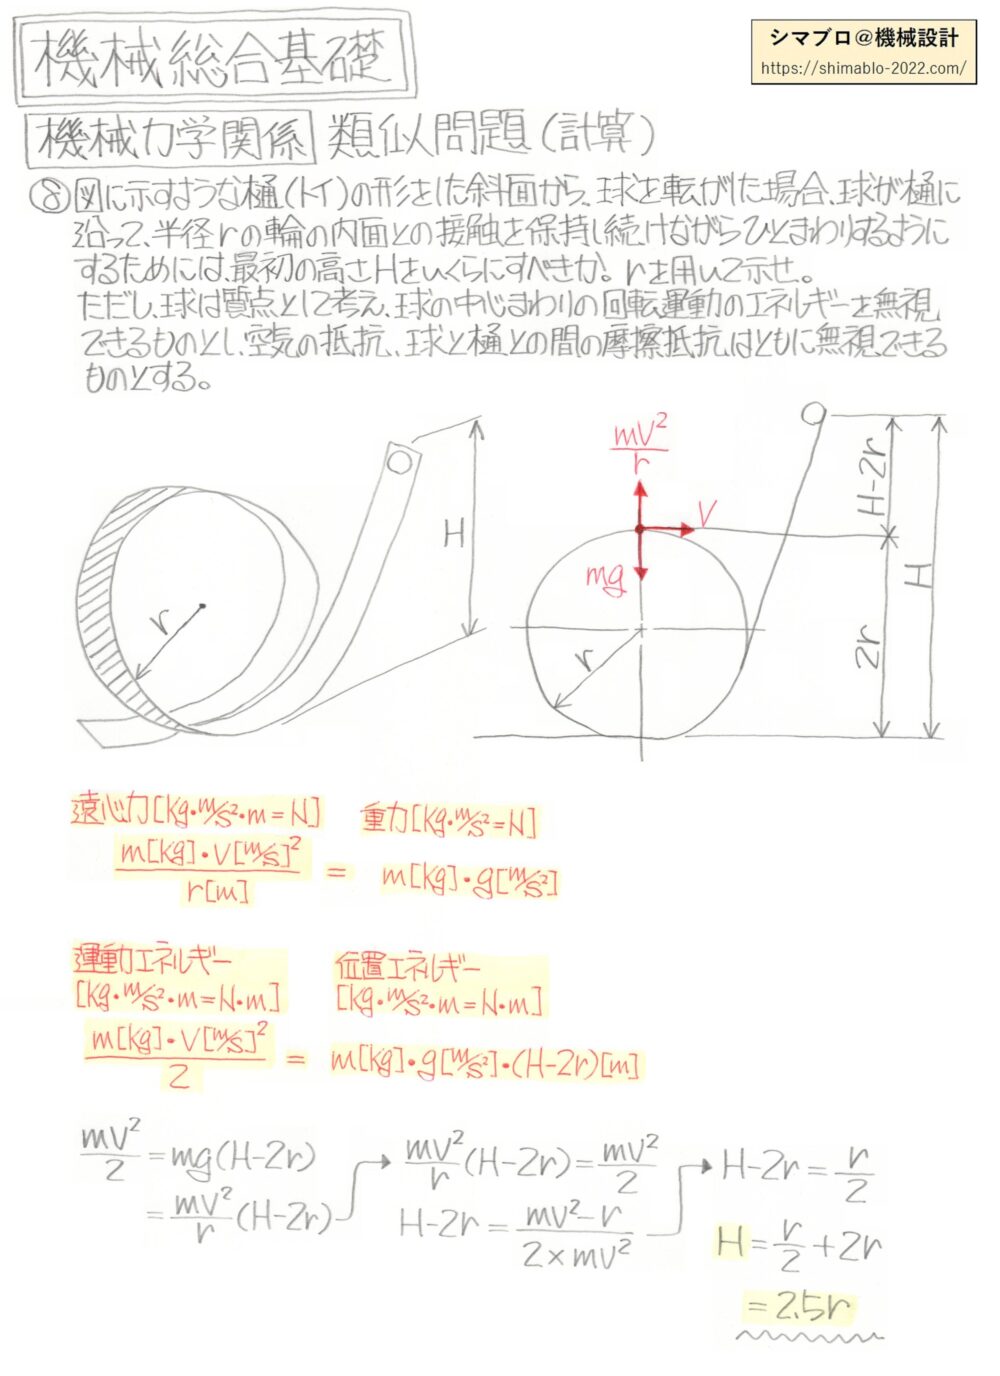 機械総合基礎
シマブロ@機械設計
https://shimablo-2022.com/
機械力学関係 類似問題(計算)
⑧図に示すような樋(トイ)の形をした斜面から、球を転がした場合、球が樋に
沿って、半径rの輪の内面との接触を保持し続けながらひとまわりするように
するためには、最初の高さHをいくらにすべきか。rを用いて示せ。
ただし、球は質点として考え、球の中心まわりの回転運動のエネルギーを無視
できるものとし、空気の抵抗、球と樋との間の摩擦抵抗はともに無視できる
ものとする。
H
r
mV²/r
V
mg
r
H-2r
2r
H
遠心力[kg・m/s²・m=N] 重力[kg・m/s²=N]
m[kg]・V[m/s]²/r[m] = m[kg]・g[m/s²]
運動エネルギー 位置エネルギー
[kg・m/s²・m=N・m] [kg・m/s²・m=N・m]
m[kg]・V[m/s]²/2 = m[kg]・g[m/s²]・(H-2r)[m]
mV²/2 = mg(H-2r)
= mV²/r (H-2r)
mV²/r (H-2r) = mV²/2
H-2r = mV²-r/2×mV²
H-2r = r/2
H = r/2 + 2r
= 2.5r